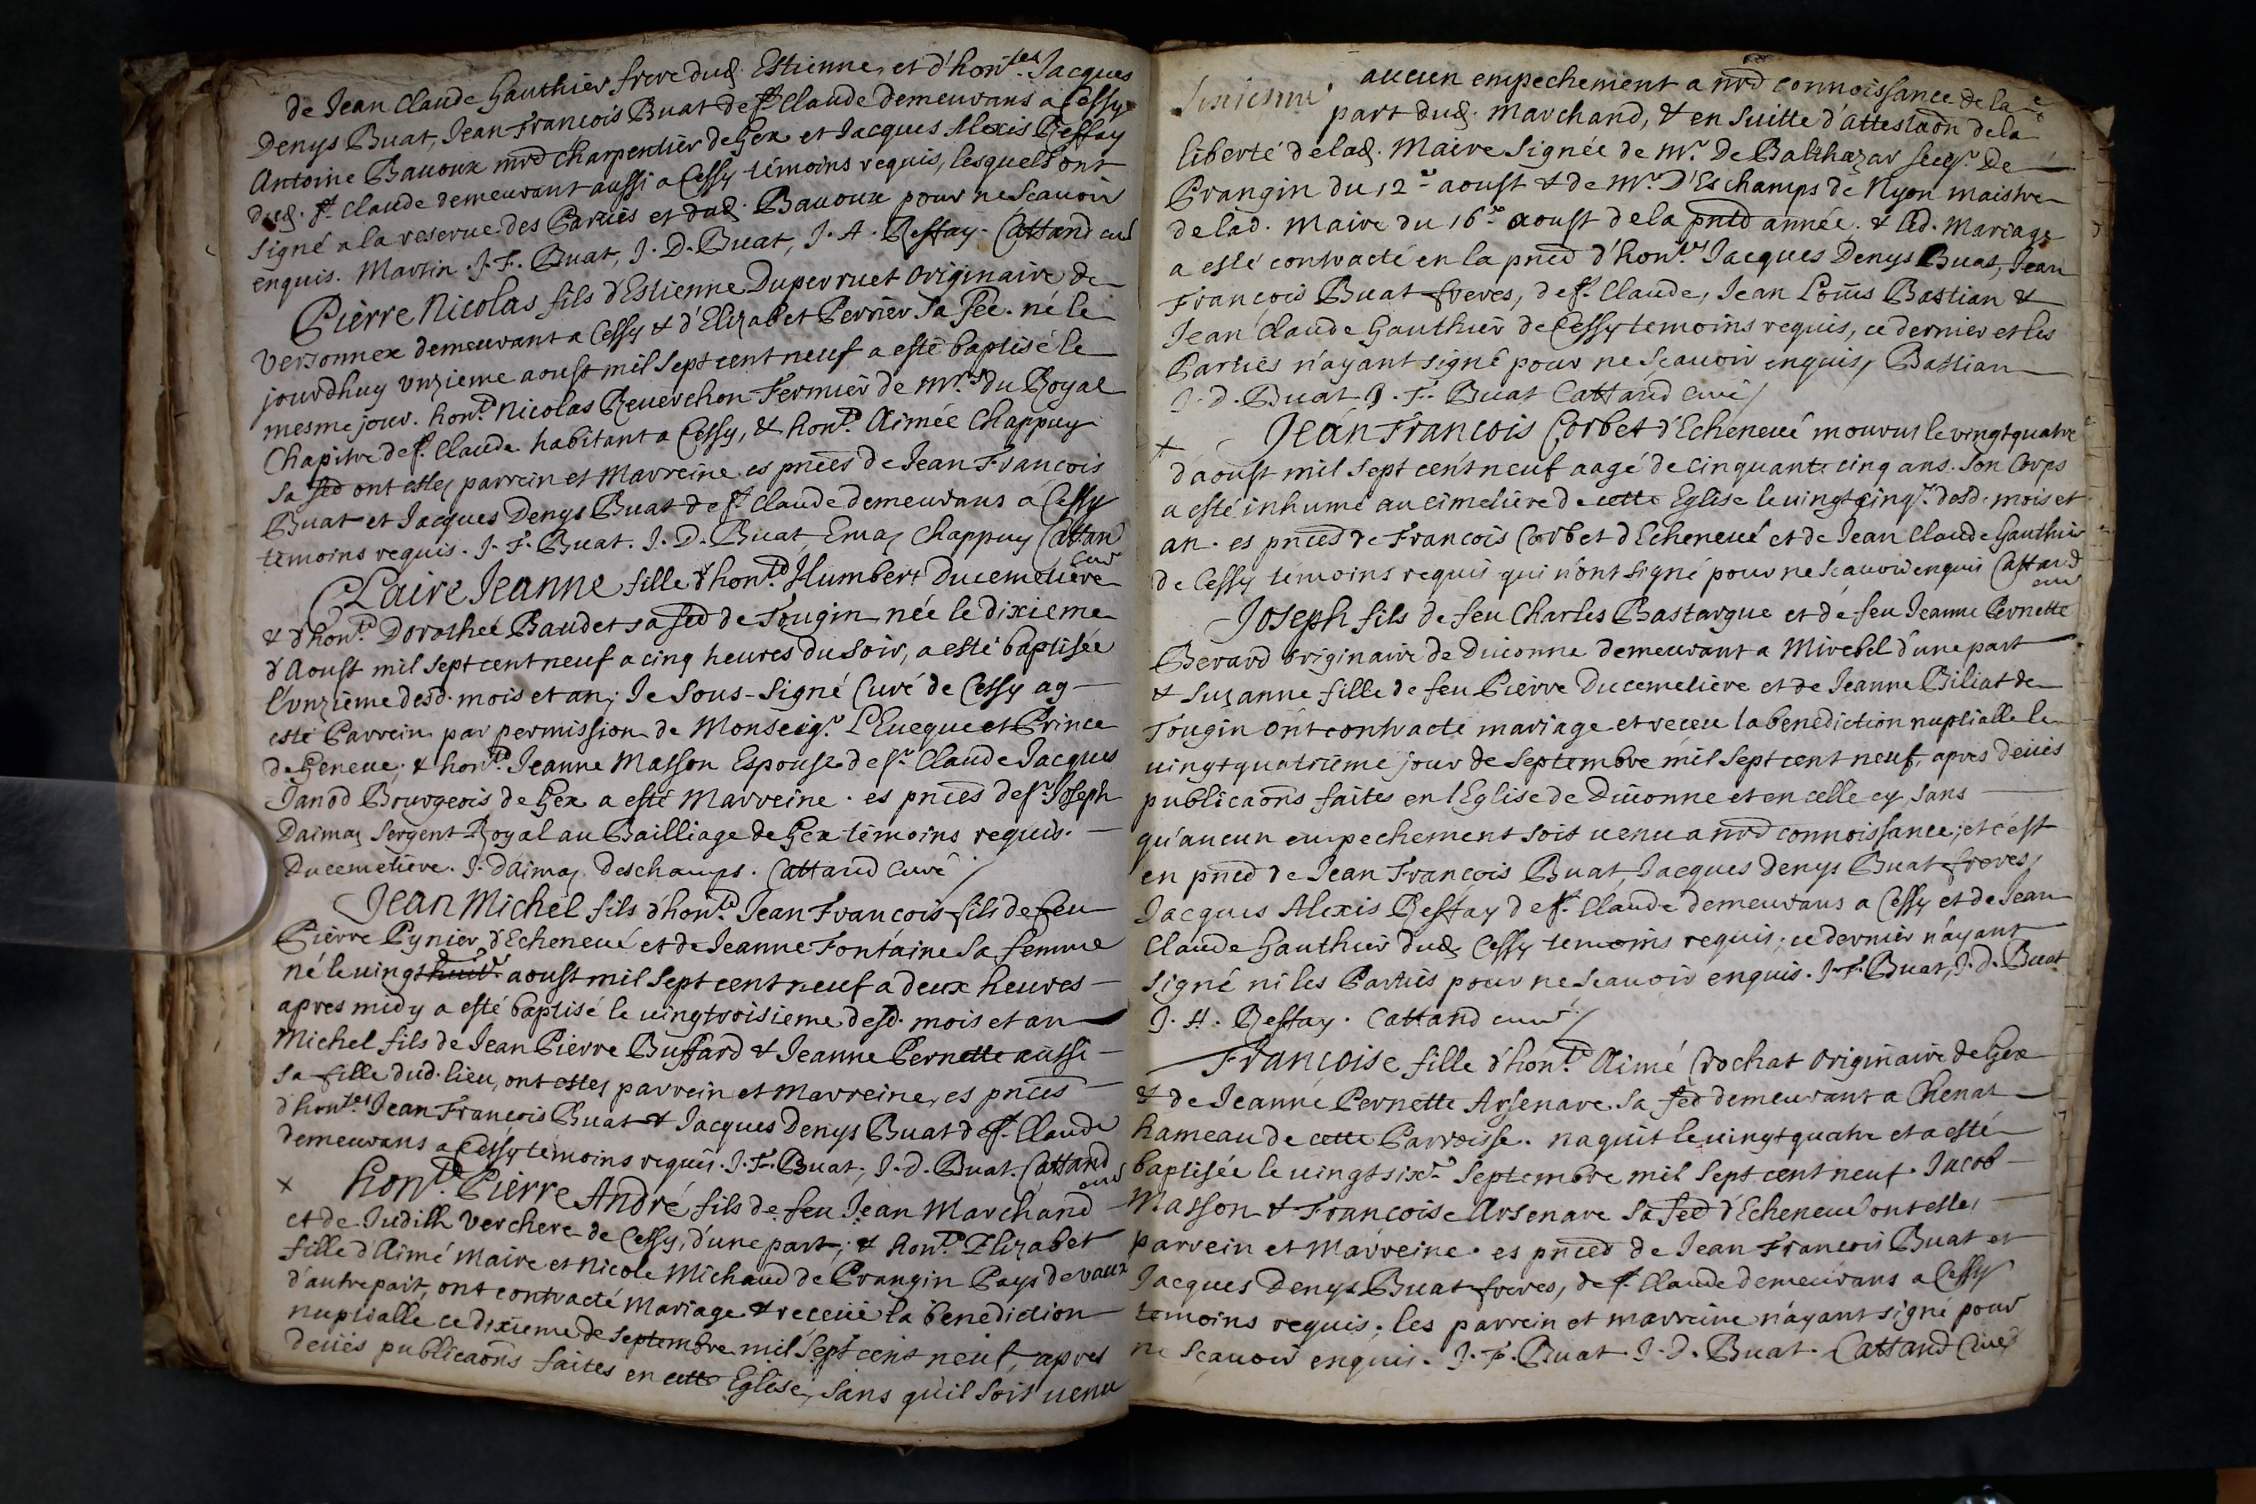 de Jean Claude Gauthier frere dud. Estienne, et d'hon.tes Jacques
Denys Buat, Jean Francois Buat de St. Claude demeurans a Cessy
Antoine Bavoux md charpentier de Gex et Jacques Alexis Reffay
dud. St. Claude demeurant aussi a Cessy témoins requis, lesquels ont
signé a la reserve des Parties et dud. Bavoux pour ne scavoir
enquis. Martin. J. F. Buat, J. D. Buat, J. A. Reffay. Cattand curé
Pierre Nicolas fils d'Estienne Duperruet originaire de
Versonnex demeurant a Cessy & d'Elizabet Perrier sa fée. né le
jourdhuy unzieme aoust mil sept cent neuf a esté baptisé le
mesme jour. hon.e Nicolas Reverchon Fermier de mrs du Royal
Chapitre de St. Claude habitant a Cessy, & hon.e Aimée Chappuy
sa fee ont estes parrein et Marreine es pnces de Jean Francois
Buat et Jacques Denys Buat de St. Claude demeurans a Cessy
temoins requis. J. F. Buat. J. D. Buat, Emaz Chappuy Cattand
curé
CLaire Jeanne fille d'hon.e Humbert Ducemetiere
& d'hon.e Dorothée Baudet sa fee de Tougin née le dixieme
d'Aoust mil sept cent neuf a cinq heures du soir, a esté baptisée
l'unzième desd. mois et an; Je sous-signé Curé de Cessy ay
esté Parrein par permission de Monseig.r L'Eveque et Prince
de Geneve; & hon.e Jeanne Masson Espouse de Sr Claude Jacques
Janod Bourgeois de Gex a esté Marreine. es pnces de Sr Joseph
Daimaz Sergent Royal au Bailliage de Gex témoins requis.
Ducemetiere. J. Daimaz Deschamps. Cattand Curé
Jean Michel fils d'hon.e Jean François fils de feu
Pierre Pynier d'Echenevé et de Jeanne Fontaine sa femme
né le vingt aoust mil sept cent neuf a deux heures
apres midy a esté baptisé le vingtroisieme desd. mois et an
Michel fils de Jean Pierre Buffard & Jeanne Pernette aussi
sa fille dud. lieu, ont estes parrein et Marreine, es pnces
d'hon.tes Jean François Buat & Jacques Denys Buat de St. Claude
demeurans a Cessy temoins requis. J. F. Buat, J. D. Buat. Cattand
curé
x hon.e Pierre André fils de feu Jean Marchand
et de Judith Verchere de Cessy, d'une part; & hon.e Elizabet
fille d'Aimé Maire et Nicole Michaud de Prangin Pays de vaux
d'autre part, ont contracté Mariage & receüe la benediction
nuptialle ce dixieme de septembre mil sept cent neuf, apres
deües publicaons faites en cette Eglise, sans qu'il soit venu
aucun empechement a nre connoissance de la
part dud. Marchand, & en suitte d'attestaon de la
liberté de lad. Maire signée de Mr. De Balthazar seigr. De
Prangin du 12e aoust & de Mr. D'Eschamps de Nyon maistre
de lad. Maire du 16e aoust de la pnte année. & led. Mariage
a esté contracté en la pnce d'hon.tes Jacques Denys Buat, Jean
François Buat freres, de St. Claude, Jean Louis Bastian &
Jean Claude Gauthier de Cessy temoins requis, ce dernier et les
Parties n'ayant signé pour ne scavoir enquis, Bastian
J. D. Buat J. F. Buat Cattand curé
x Jean Francois Corbet d'Echenevé mourut le vingtquatre
d'aoust mil sept cent neuf aagé de cinquante cinq ans. son corps
a esté inhumé au cimetiere de cette Eglise le vingt cinqe. desd. mois et
an. es pnces de Francois Corbet d'Echenevé et de Jean Claude Gauthier
de Cessy témoins requis qui n'ont signé pour ne scavoir enquis Cattand
curé
Joseph fils de feu Charles Bastargue et de feu Jeanne Pernette
Berard originaire de Divonne demeurant a Mirebel d'une part
& Suzanne fille de feu Pierre Ducemetiere et de Jeanne Biliat de
Tougin ont contracté mariage et receu la benediction nuptialle le
vingtquatrieme jour de septembre mil sept cent neuf, apres deües
publicaons faites en l'Eglise de Divonne et en celle cy sans
qu'aucun empechement soit venu a nre connoissance; et c'est
en pnce de Jean François Buat, Jacques Denys Buat freres,
Jacques Alexis Reffay de St. Claude demeurans a Cessy et de Jean
Claude Gauthier dud. Cessy temoins requis; ce dernier n'ayant
signé ni les Parties pour ne scavoir enquis. J. F. Buat, J. D. Buat
J. A. Reffay. Cattand curé
Françoise fille d'hon.e Aimé Crochat originaire de Gex
& de Jeanne Pernette Arsenare sa fee demeurant a Chenat
hameau de cette Parroisse. naquit le vingtquatre et a esté
baptisée le vingt sixe septembre mil sept cent neuf. Jacob
Masson & Francoise Arsenare sa fee d'Echenevé ont estes
parrein et Marreine. es pnces de Jean François Buat et
Jacques Denys Buat freres, de St. Claude demeurans a Cessy
temoins requis; les parrein et marreine n'ayant signé pour
ne scavoir enquis. J. F. Buat. J. D. Buat. Cattand Curé